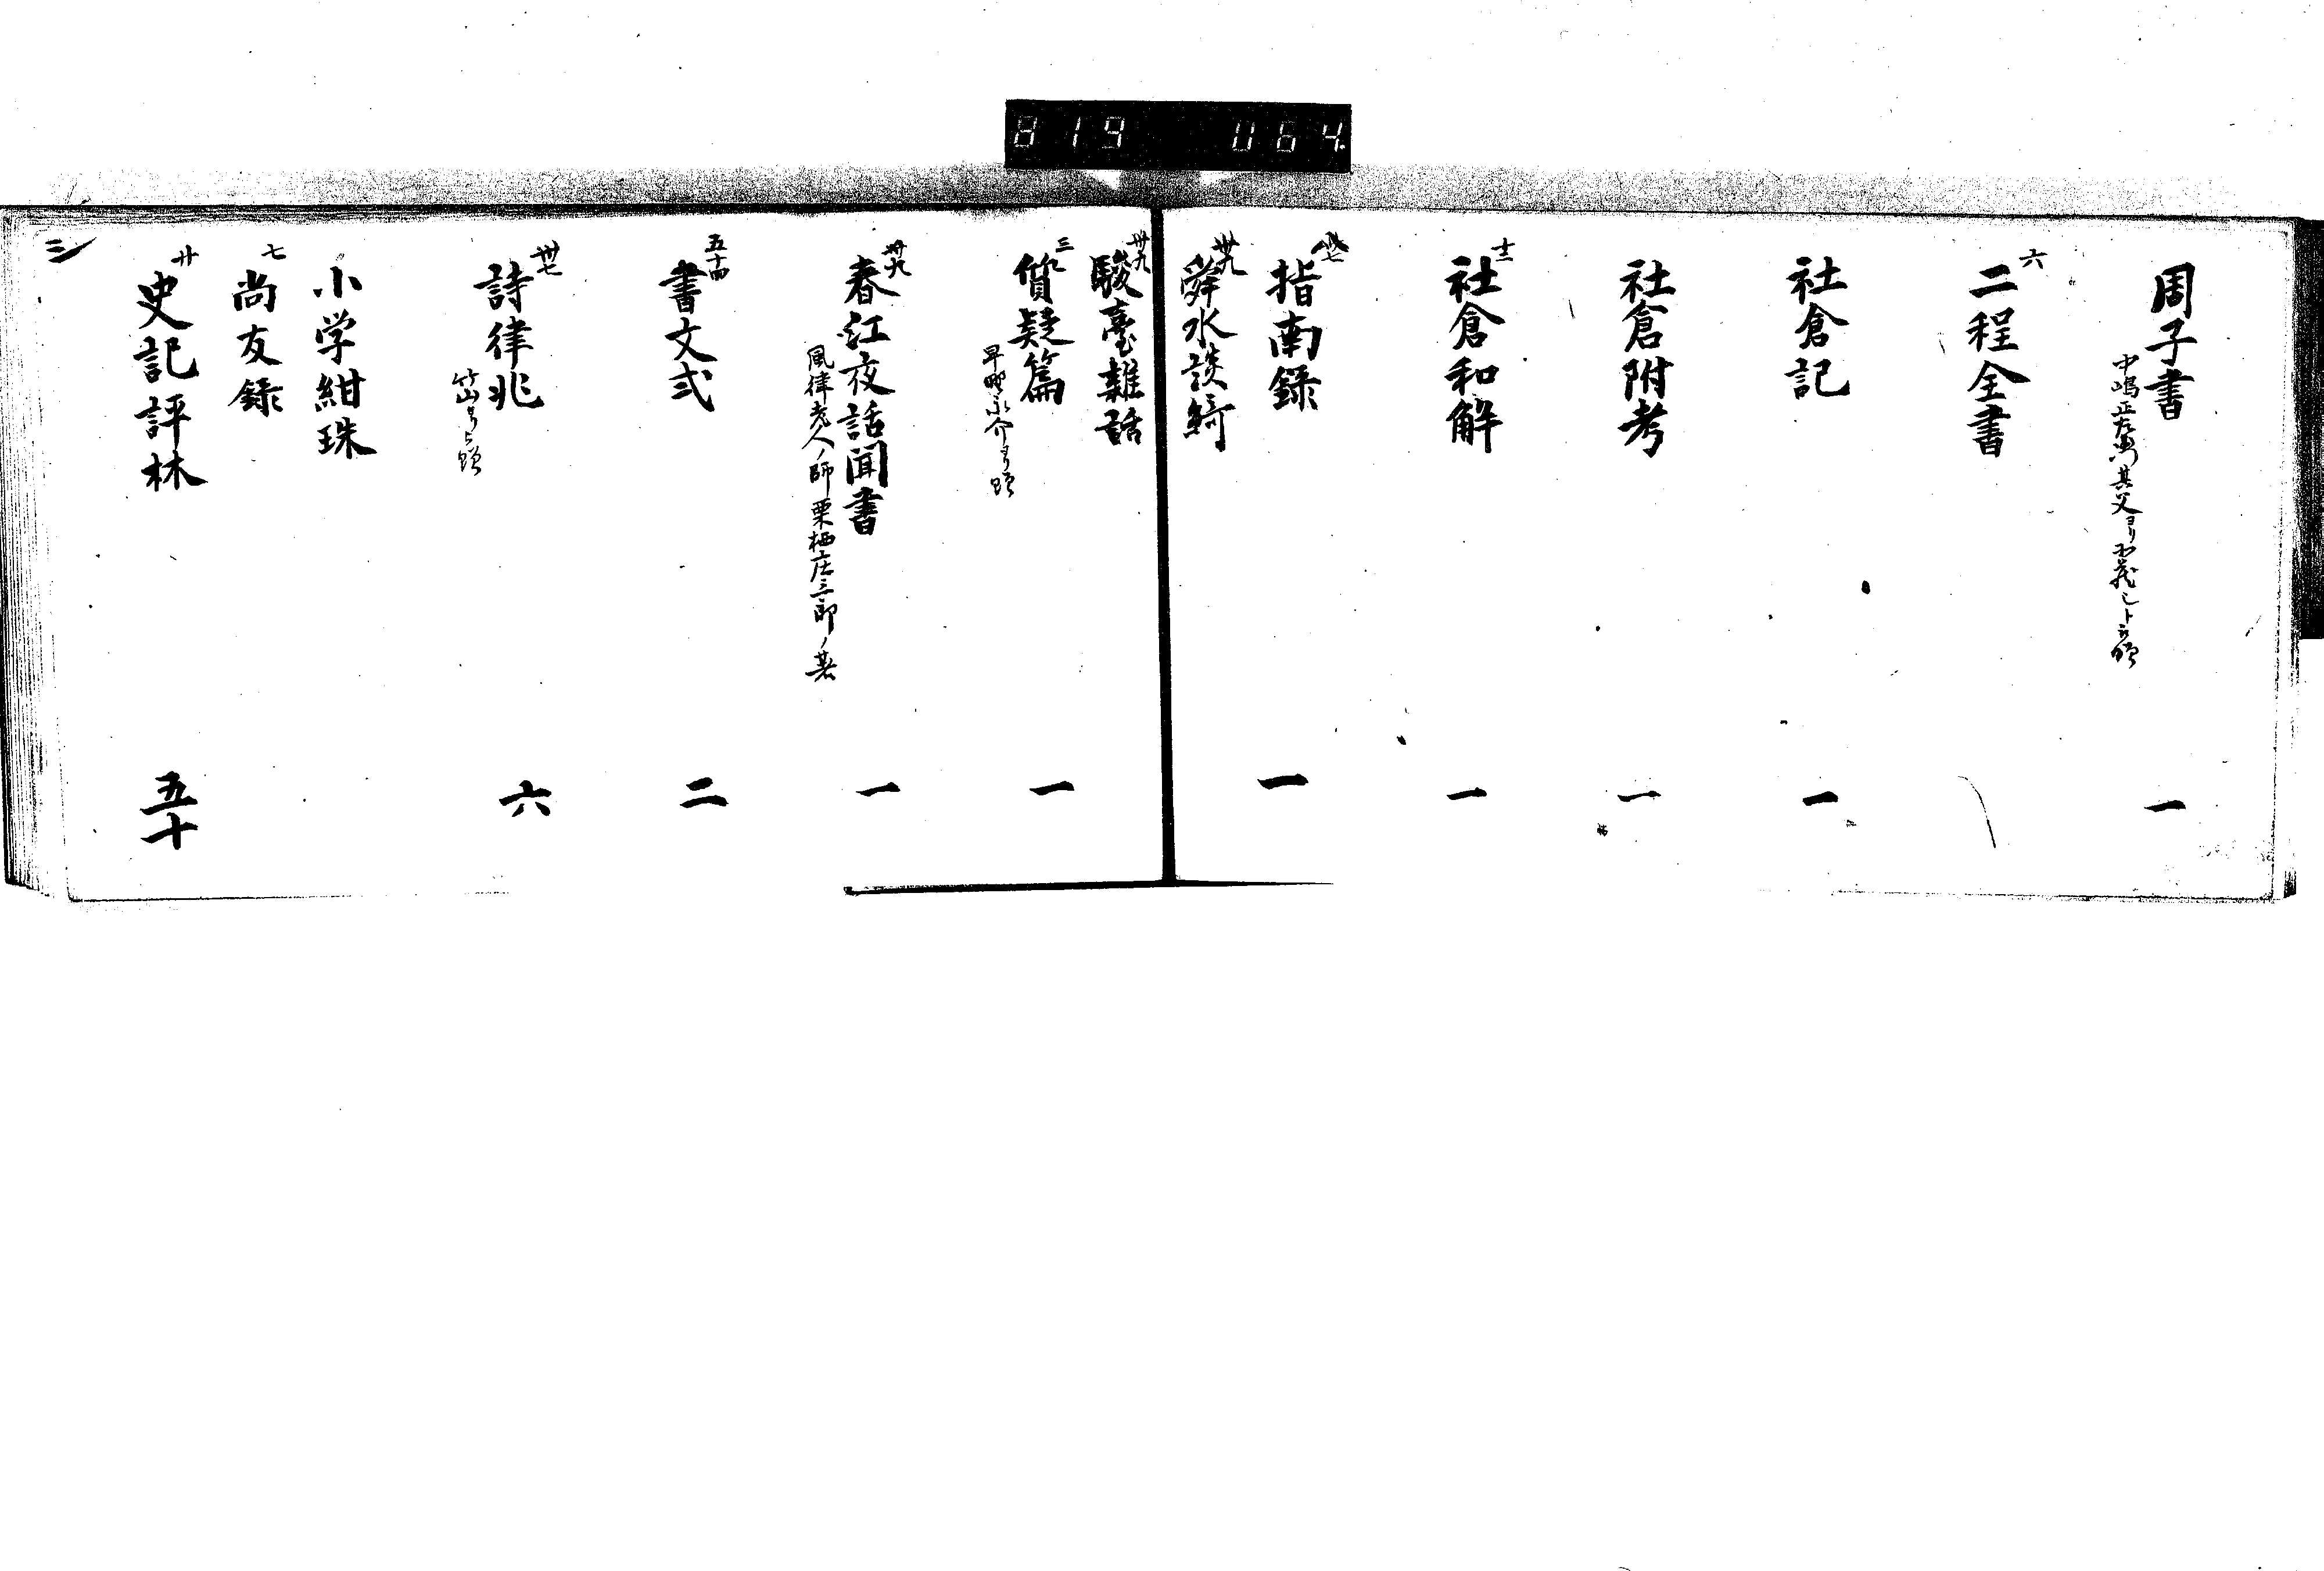 819 064.
周子書 一
中嶋正左衛門其父ヨリ
六
二程全書
社倉記 一
社倉附考 一
十二
社倉和解 一
指南録 一
卅九
舜水談綺
卅九
駿臺雑話
三
質疑篇 一
早野永介ヨリ贈
卅九
春江夜話聞書 一
風律老人ノ師栗栖庄三郎ノ著
五十四
書文式 二
卅七
詩律兆 六
竹山ヨリ贈
小学紺珠
七
尚友録
廿
史記評林 五十
三